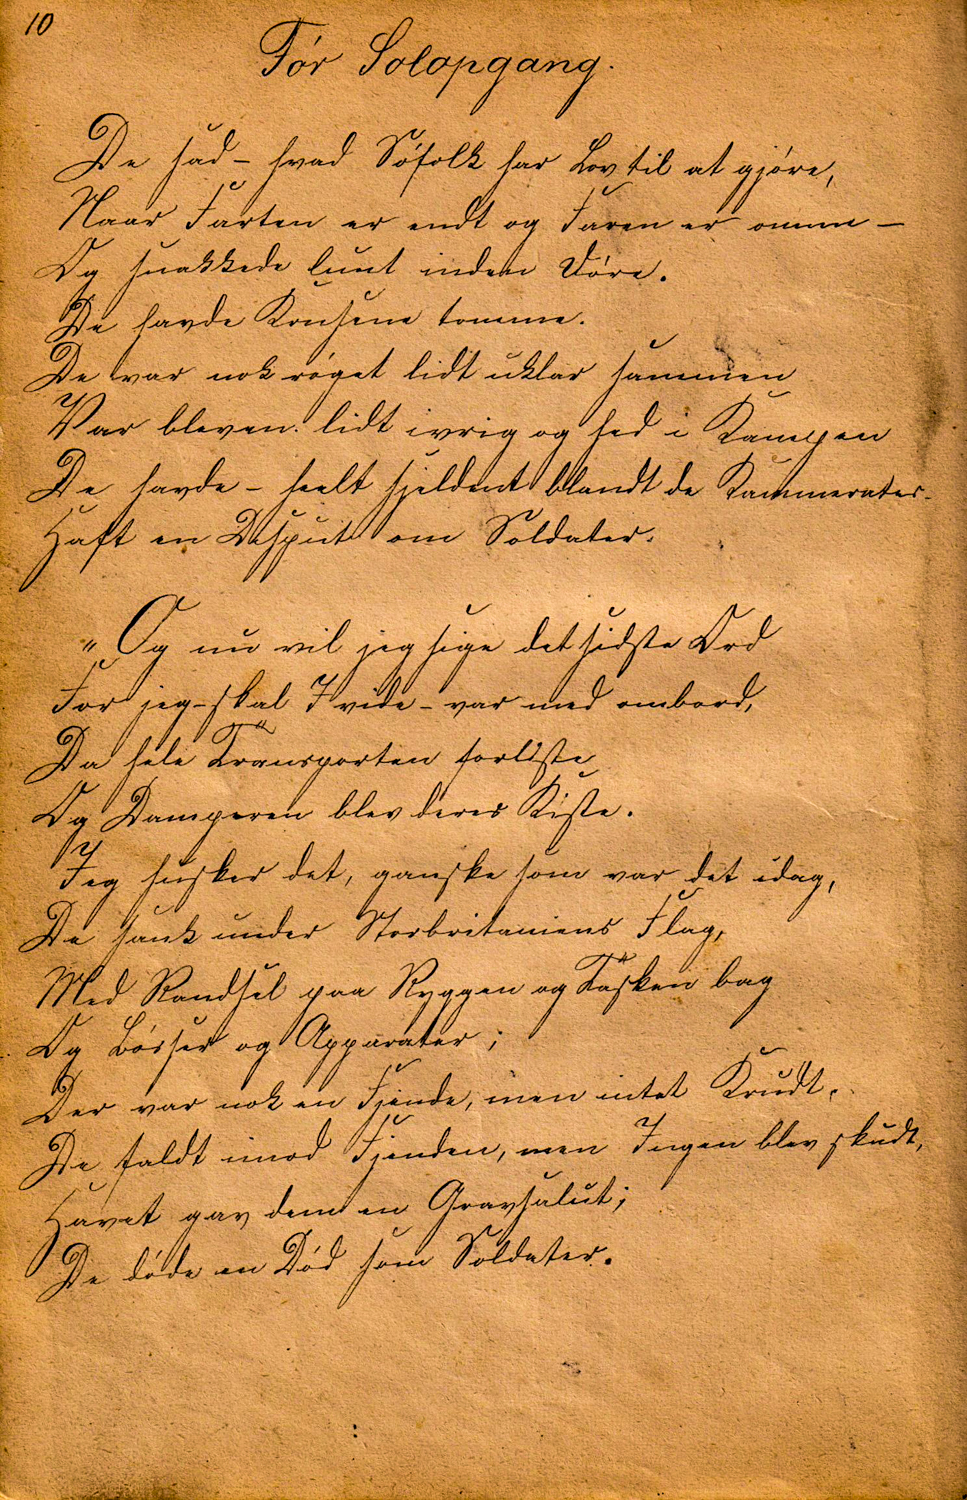 10
Før Solopgang.
De sad – hvad Søfolk har Lov til at gjøre,
Naar Farten er endt og Faren er omme –
Og snakkede lunt inden Døre.
De havde Krusene tomme.
De var nok røget lidt uklar sammen
Var bleven lidt ivrig og hed i Kampen
De havde – heelt sjeldent blandt de Kammerater –
Haft en Disput om Soldater.
"Og nu vil jeg sige det sidste Ord
For jeg – skal I vide – var med ombord,
Da hele Transporten forliste
Og Damperen blev deres Kiste.
Jeg husker det, ganske som var det idag,
De sank under Storbritaniens Flag,
Med Randsel paa Ryggen og Tasken bag
Og Bøsser og Apparater;
Der var nok en Fjende, men intet Krudt.
De faldt imod Fjenden, men Ingen blev skudt,
Havet gav dem en Gravsalut;
De døde en Død som Soldater.